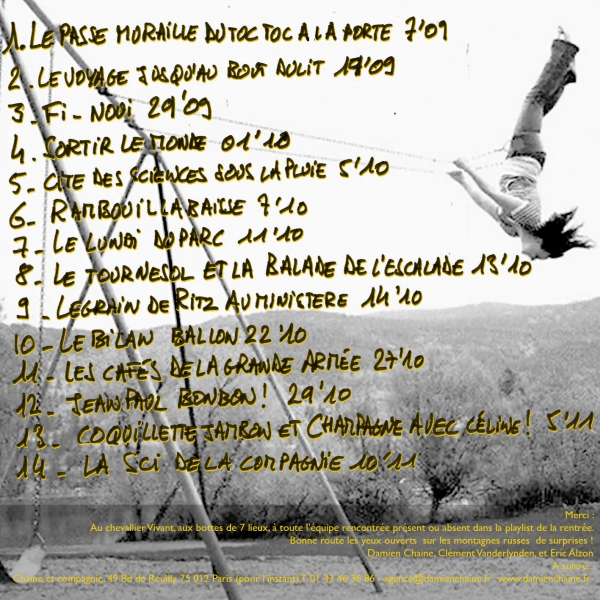 1. LE PASSE MURAILLE DU TOC TOC A LA PORTE 7'09
2. LE VOYAGE JUSQU'AU BOUT DU LIT 17'09
3 - FI - NOUI 29'09
4. SORTIR LE MONDE 01'10
5 - CITE DES SCIENCES SOUS LA PLUIE 5'10
6 - RAMBOUILLABAISSE 7'10
7 - LE LUNDI DU PARC 11'10
8 - LE TOURNESOL ET LA BALADE DE L'ESCALADE 13'10
9 - LEGRAIN DE RITZ AU MINISTERE 14'10
10 - LE BILAN BALLON 22'10
11 - LES CAFÉS DE LA GRANDE ARMÉE 27'10
12 - JEAN PAUL BONBON ! 29'10
13 - COQUILLETTE JAMBON ET CHAMPAGNE AVEC CÉLINE ! 5'11
14 - LA SCI DE LA COMPAGNIE 10'11
Merci :
Au chevallier Vivant, aux bottes de 7 lieux, à toute l'équipe rencontrée présent ou absent dans la playlist de la rentrée.
Bonne route les yeux ouverts sur les montagnes russes de surprises !
Damien Chaine, Clément Vanderlynden, et Eric Alzon
A suivre...
Chaine et compagnie, 49 Bd de Reuilly 75 012 Paris (pour l'instant) T 01 43 46 30 86 - agence@damienchaine.fr www.damienchaine.fr